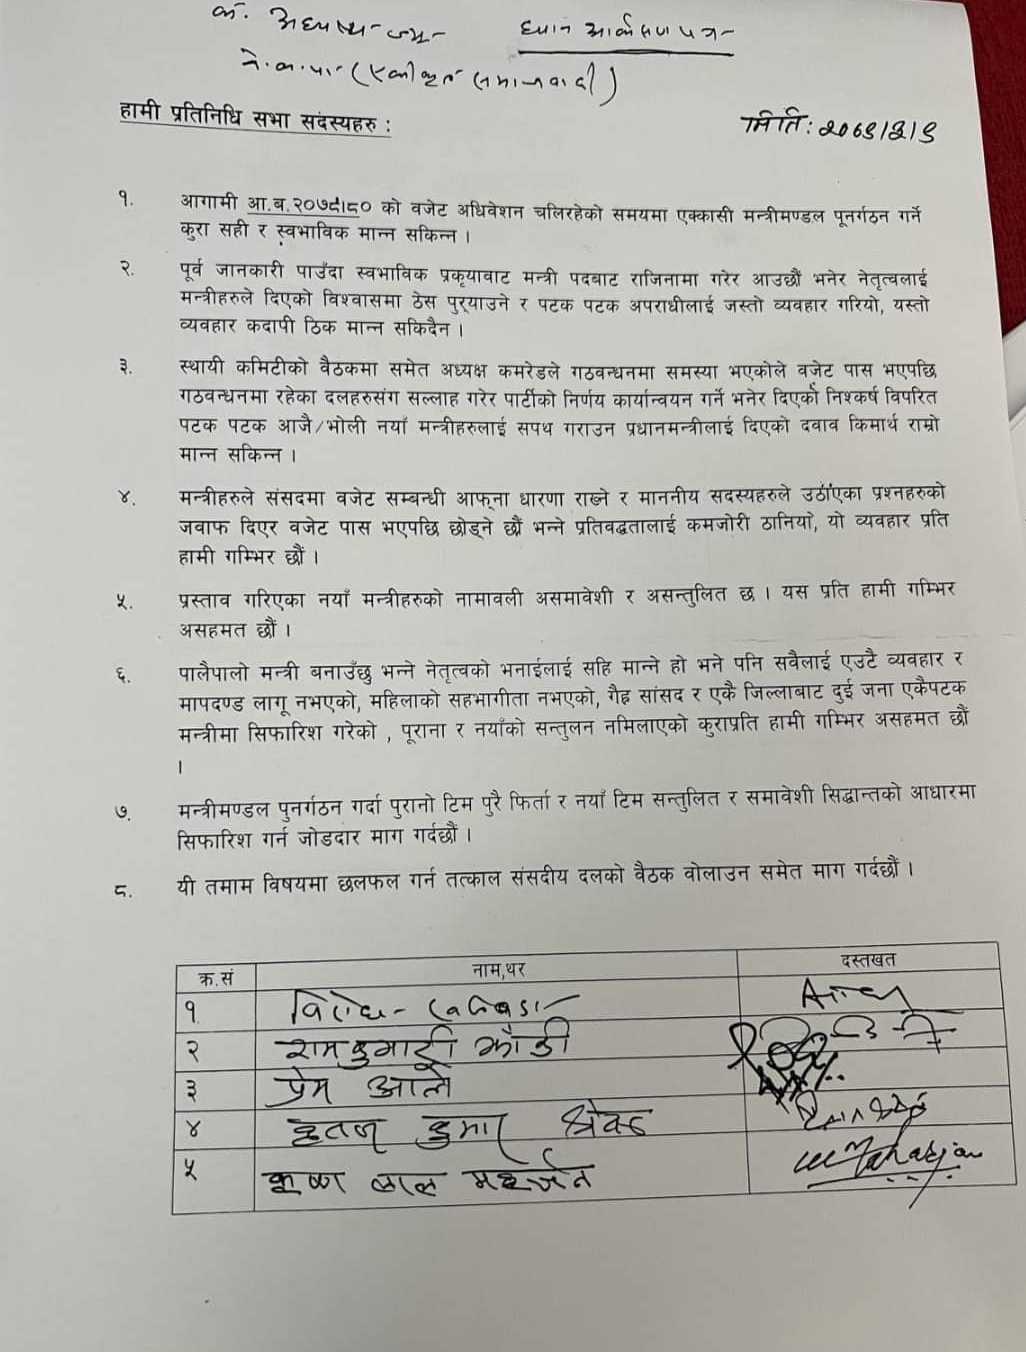 क. अध्यक्ष ज्यू-
ध्यान आर्कषण पत्र-
ने.क.पा. (एकीकृत समाजवादी)
हामी प्रतिनिधि सभा सदस्यहरु :
मिति:
१. आगामी आ.ब.२०७९।८० को वजेट अधिवेशन चलिरहेको समयमा एक्कासी मन्त्रीमण्डल पूनर्गठन गर्ने
कुरा सही र स्वभाविक मान्न सकिन्न ।
२. पूर्व जानकारी पाउँदा स्वभाविक प्रकृयावाट मन्त्री पदबाट राजिनामा गरेर आउछौं भनेर नेतृत्वलाई
मन्त्रीहरुले दिएको विश्वासमा ठेस पुर्‍याउने र पटक पटक अपराधीलाई जस्तो व्यवहार गरियो, यस्तो
व्यवहार कदापी ठिक मान्न सकिदैन ।
३. स्थायी कमिटीको वैठकमा समेत अध्यक्ष कमरेडले गठवन्धनमा समस्या भएकोले वजेट पास भएपछि
गठवन्धनमा रहेका दलहरुसंग सल्लाह गरेर पार्टीको निर्णय कार्यान्वयन गर्ने भनेर दिएको निश्कर्ष विपरित
पटक पटक आजै/भोली नयाँ मन्त्रीहरुलाई सपथ गराउन प्रधानमन्त्रीलाई दिएको दवाव किमार्थ राम्रो
मान्न सकिन्न ।
४. मन्त्रीहरुले संसदमा वजेट सम्बन्धी आफ्ना धारणा राख्ने र माननीय सदस्यहरुले उठाँएका प्रश्नहरुको
जवाफ दिएर वजेट पास भएपछि छोड्ने छौं भन्ने प्रतिवद्धतालाई कमजोरी ठानियो, यो व्यवहार प्रति
हामी गम्भिर छौं ।
५. प्रस्ताव गरिएका नयाँ मन्त्रीहरुको नामावली असमावेशी र असन्तुलित छ । यस प्रति हामी गम्भिर
असहमत छौं ।
६. पालैपालो मन्त्री बनाउँछु भन्ने नेतृत्वको भनाईलाई सहि मान्ने हो भने पनि सवैलाई एउटै व्यवहार र
मापदण्ड लागू नभएको, महिलाको सहभागीता नभएको, गैह्र सांसद र एकै जिल्लाबाट दुई जना एकैपटक
मन्त्रीमा सिफारिश गरेको , पूराना र नयाँको सन्तुलन नमिलाएको कुराप्रति हामी गम्भिर असहमत छौं
।
७. मन्त्रीमण्डल पुनर्गठन गर्दा पुरानो टिम पुरै फिर्ता र नयाँ टिम सन्तुलित र समावेशी सिद्धान्तको आधारमा
सिफारिश गर्न जोडदार माग गर्दछौं ।
८. यी तमाम विषयमा छलफल गर्न तत्काल संसदीय दलको वैठक वोलाउन समेत माग गर्दछौं ।
क्र.सं नाम,थर दस्तखत
१ विरोध खतिवडा
२ रामकुमारी झाँक्री
३ प्रेम आले
४ कुमार श्रेष्ठ
५ कृष्ण लाल महर्जन Maharjan